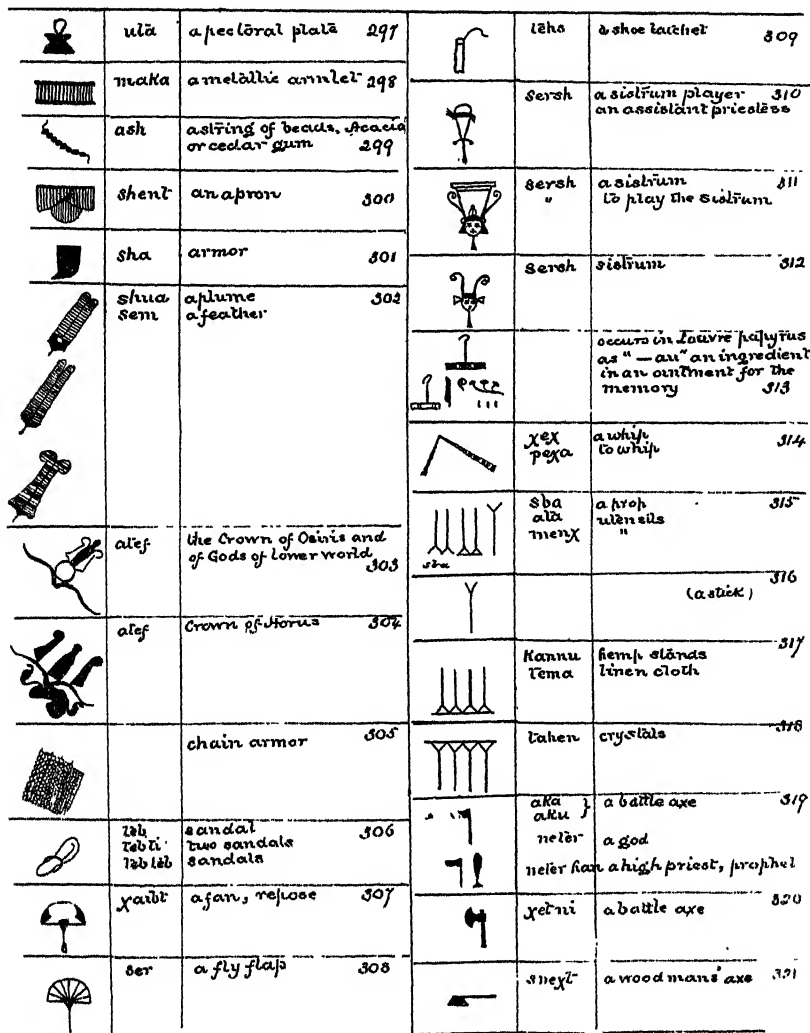 utā a pectoral plate 297
maka a metallic armlet 298
ash a string of beads, Acacia
or cedar gum 299
shent an apron 300
sha armor 301
shua a plume 302
sem a feather
atef the Crown of Osiris and
of Gods of Lower world
303
atef Crown of Horus 304
chain armor 305
teb sandal 306
tebti two sandals
teb teb sandals
χaibt a fan, repose 307
ser a fly flap 308
tehs a shoe latchet 309
sersh a sistrum player 310
an assistant priestess
sersh a sistrum 311
" to play the sistrum
sersh sistrum 312
occurs in Louvre papyrus
as "— au" an ingredient
in an ointment for the
memory 313
χeχ a whip 314
peχa to whip
sba a prop 315
ata utensils
menχ "
sba
316
(a stick)
317
Kannu hemp stands
Tema linen cloth
318
tahen crystals
319
aka } a battle axe
aku
neter a god
neter han a high priest, prophet
320
χetni a battle axe
sneχt a woodmans' axe 321